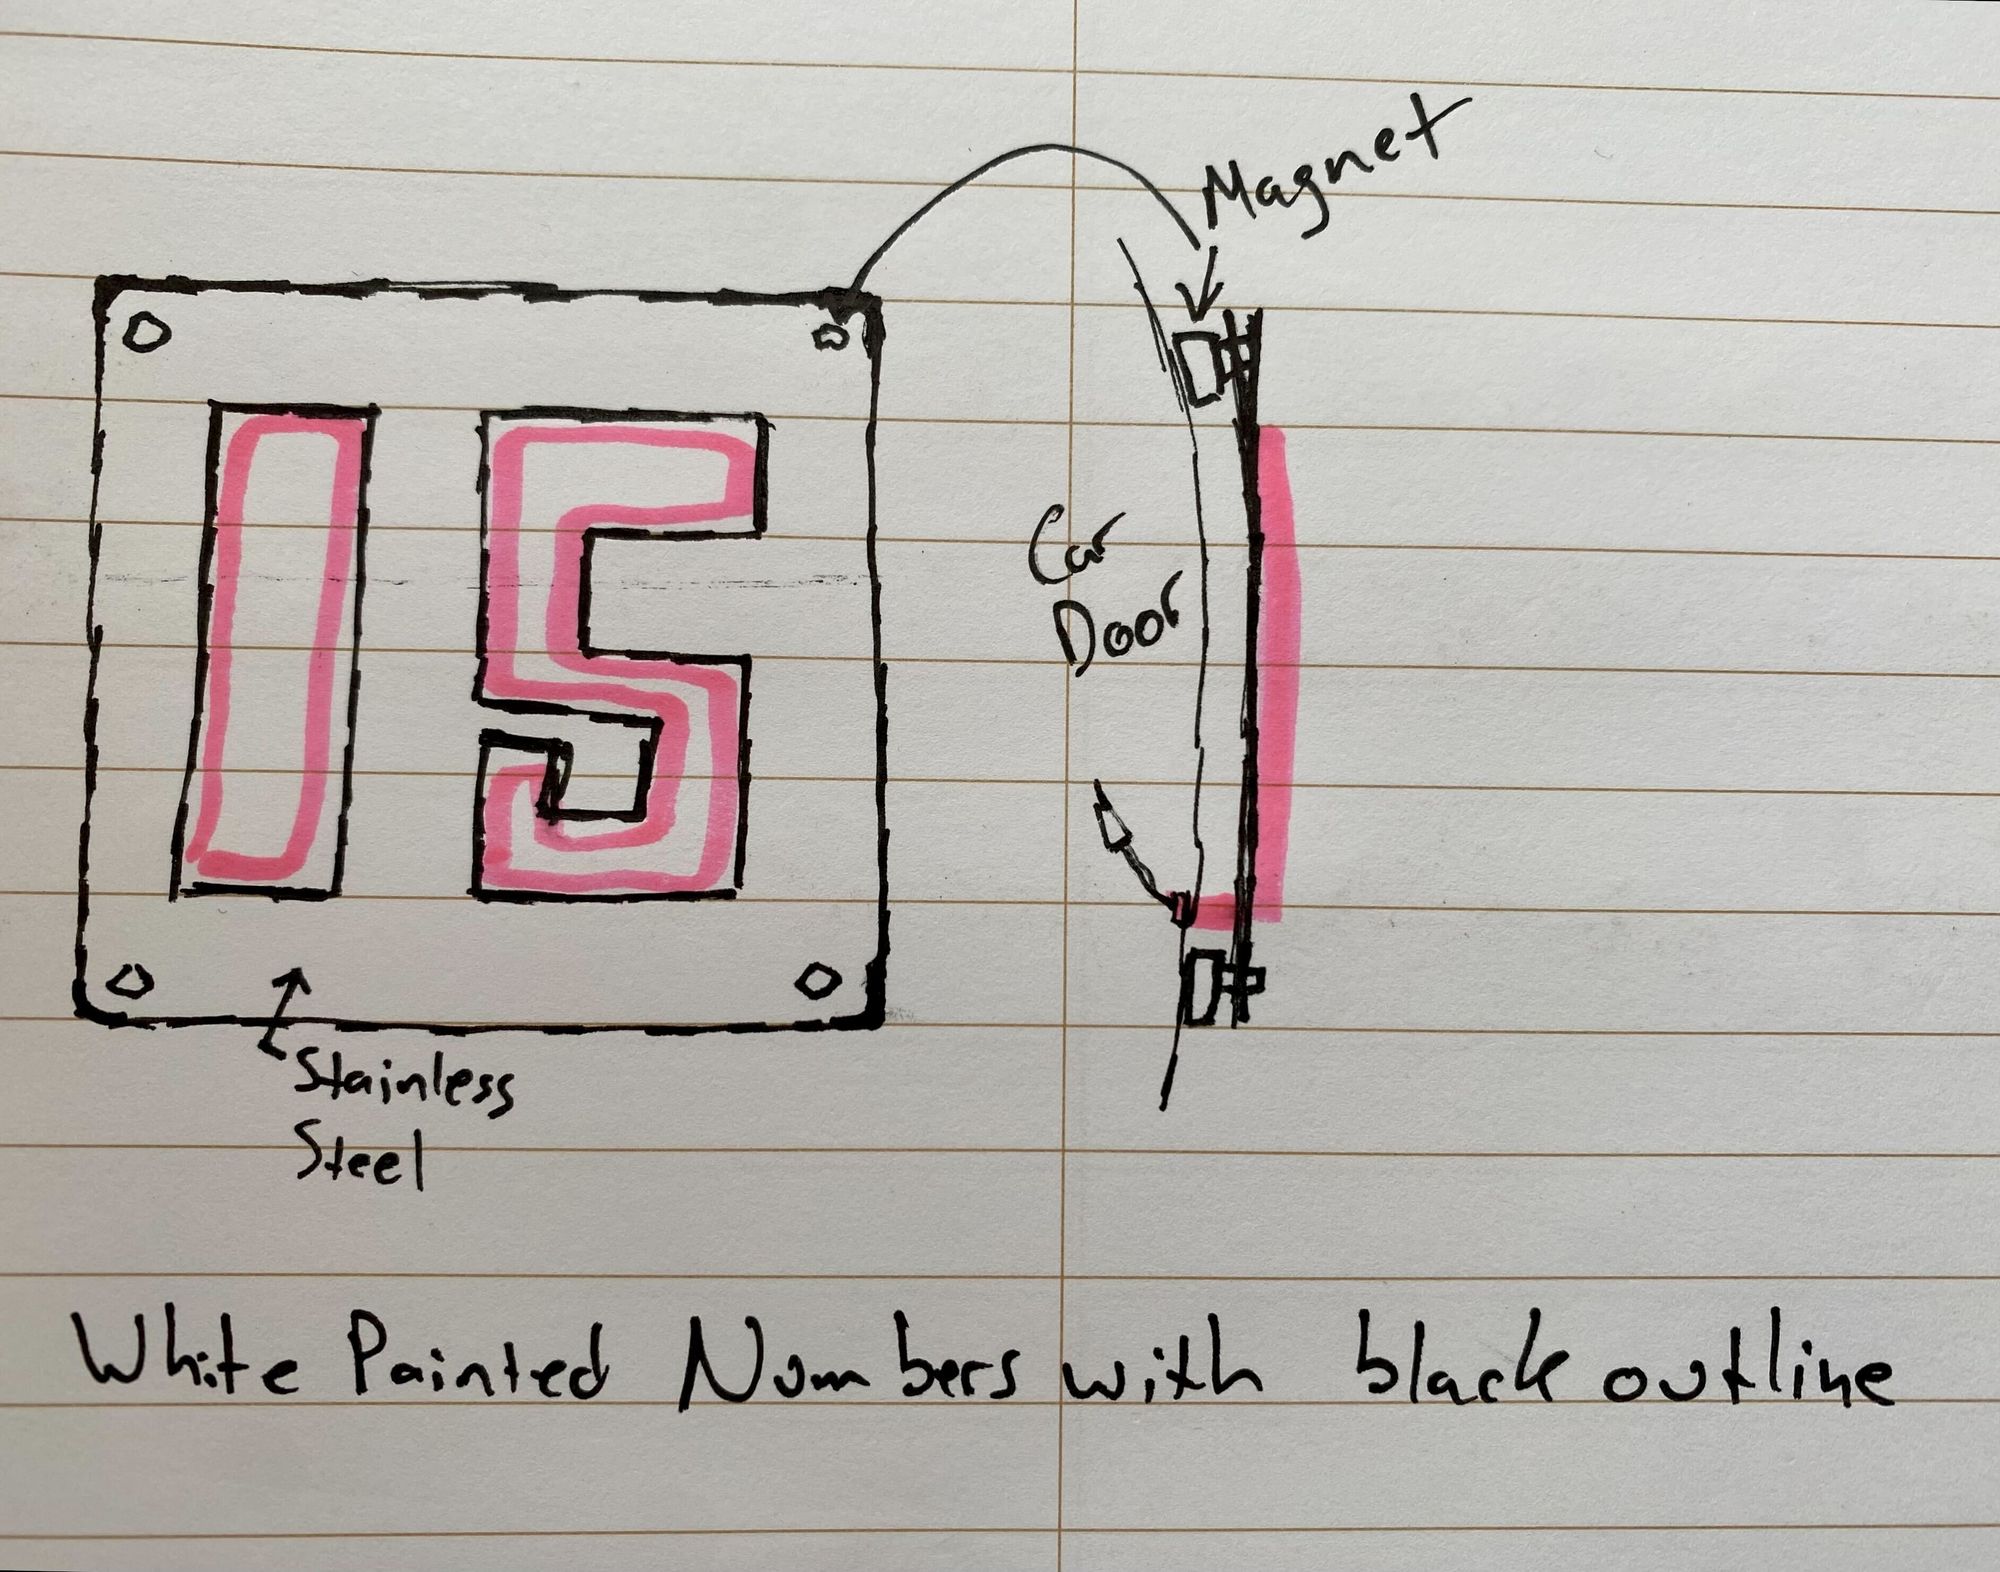 Magnet
15
Car
Door
Stainless
Steel
White Painted Numbers with black outline